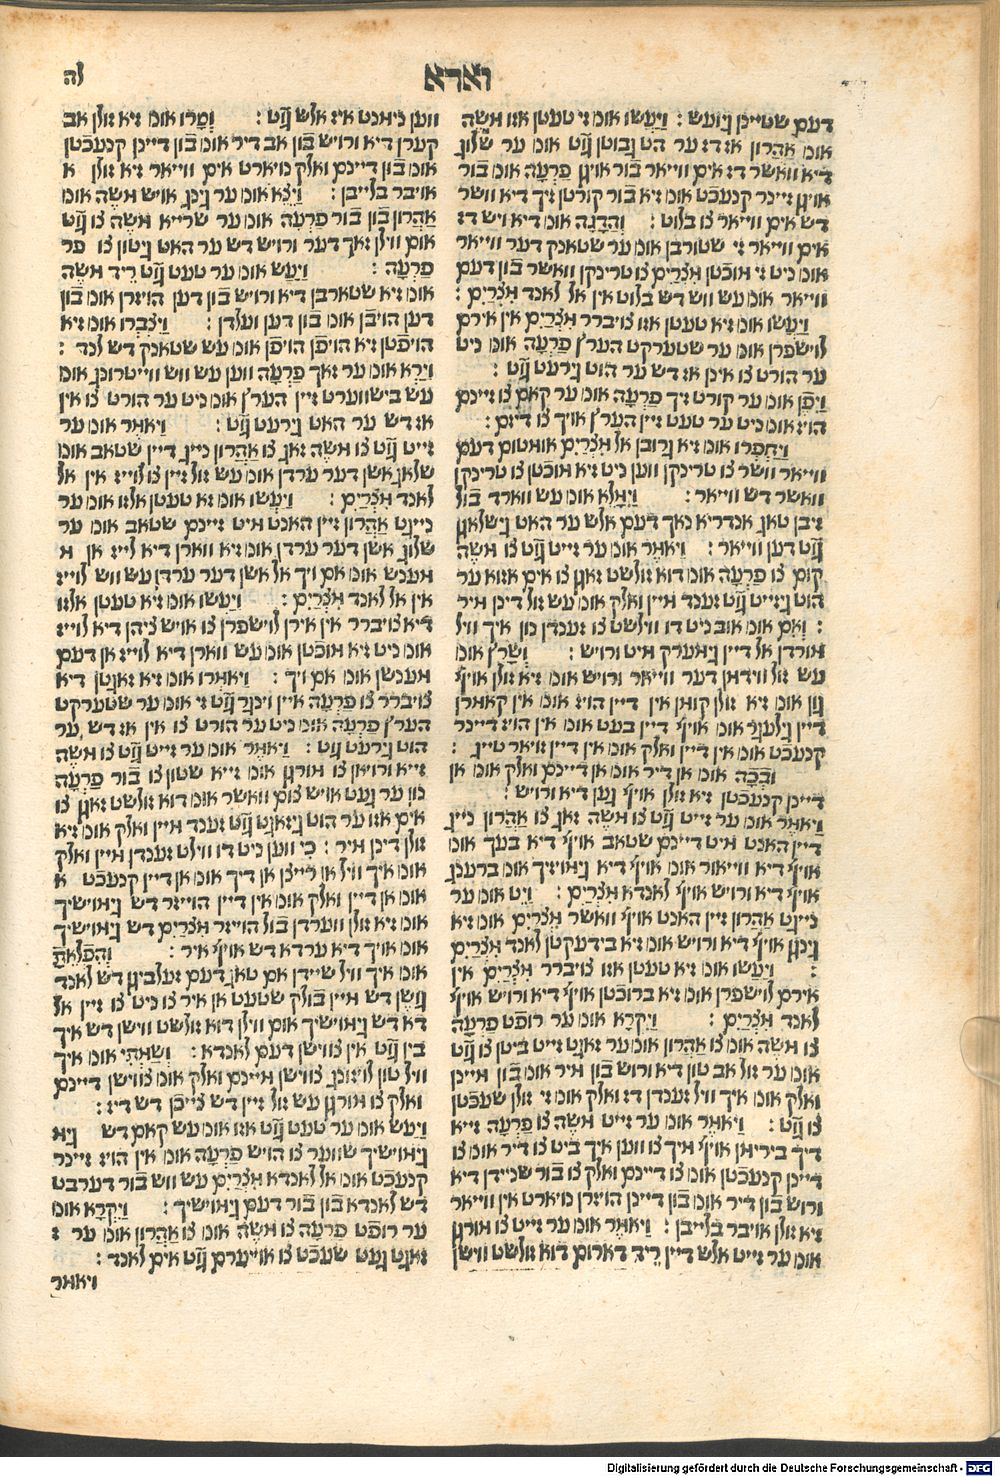 וארא
לה
דעם שטייכן גיועש : וַיַּעֲשׂוּ אוּנ׳ זי טעטן אזו משה
אונ׳ אַהֲרֹן אז דז ער הט גבוטן גֿוֹט אונ׳ ער שלוג
דיא וואשר דז אים ווייאר בֿור אויגן פַרְעֹה אונ׳ בֿור
אויגן זיינר קנעכֿט אונ׳ זיא בֿור קורטן זיך דיא וושר
דש אים ווייאר צו בלוט : וְהַדָגָה אונ׳ דיא ויש דז
אים ווייאר זי שטורבן אונ׳ ער שטאנק דער ווייאר
אונ׳ ניט זי מוכֿטן מִצְרַיִם צו טרינקן וואשר בֿון דעם
ווייאר אונ׳ עש ווש דש בלוט אין אל לאנד מִצְרַיִם :
וַיַּעֲשׂוּ אונ׳ זיא טעטן אזו צויברר מִצְרַיִם אין אירם
לוישפרן אונ׳ ער שטערקט הערץ פַרְעֹה אונ׳ ניט
ער הורט צו אינן אז דש ער הוט גירעט גֿוֹט :
וַיִפֶן אונ׳ ער קורט זיך פַרְעֹה אונ׳ ער קאם צו זיינם
הויז אונ׳ ניט ער טעט זיין הערץ אויך צו דיזם :
וַיַחְפְרוּ אונ׳ זיא גרובן אל מִצְרַיִם אומטום דעם
ווייאר וושר צו טרינקן ווען ניט זיא מוכֿטן צו טרינקן
וואשר דש ווייאר : וַיִמָלֵא אונ׳ עש ווארד בֿול
זיבן טאג אנדריא נאך דעם אלש ער האט גישלאגן
גֿוֹט דען ווייאר : וַיֹאמֶר אונ׳ ער זייט גֿוֹט צו משה
קום צו פַרְעֹה אונ׳ דוא זולשט זאגן צו אים אזוא ער
הוט גיזייט גֿוֹט זענד מיין ואלק אונ׳ עש זול דינן מיר
: וְאִם אונ׳ אוב ניט דו ווילשט צו זענדן נון איך וויל
מורדן אל דיין גימערק מיט ורויש : וְשָׁרַץ אונ׳
עש זול ווידמן דער ווייאר ורויש אונ׳ זיא זולן אויף
גון אונ׳ זיא זולן קומן אין דיין הויז אונ׳ אין קאמרן
דיין גילעגר אונ׳ אויף דיין בעט אונ׳ אין הויז דיינר
קנעכֿט אונ׳ אין דיין ואלק אונ׳ אין דיין זויאר טייג :
וּבְכָה אונ׳ אן דיר אונ׳ אן דיינם ואלק אונ׳ אן
דיינן קנעכֿטן זיא זולן אויף גען דיא ורויש :
וַיֹאמֶר אונ׳ ער זייט גֿוֹט צו משה זאג צו אַהֲרֹן נייג
דיין האנט מיט דיינם שטאב אויף דיא בעך אונ׳
אויף דיא ווייאור אונ׳ אויף דיא גימוזיך אונ׳ ברענג
אויף דיא ורויש אויף לאנדא מִצְרַיִם : וַיֵט אונ׳ ער
נייגט אַהֲרֹן זיין האנט אויף וואשר מִצְרַיִם אונ׳ זיא
גינגן אויף דיא ורויש אונ׳ זיא בידעקטן לאנד מִצְרַיִם
: וַיַעֲשׂוּ אונ׳ זיא טעטן אזו צויברר מִצְרַיִם אין
אירם לוישפרן אונ׳ זיא ברוכֿטן אויף דיא ורויש אויף
לאנד מִצְרַיִם : וַיִקְרָא אונ׳ ער רופֿט פַרְעֹה
צו משה אונ׳ צו אַהֲרֹן אונ׳ ער זאגט זייט ביטן צו גֿוֹט
אונ׳ ער זול אב טון דיא ורוש בֿון מיר אונ׳ בֿון מיינן
ואלק אונ׳ איך וויל זענדן דז ואלק אונ׳ זי זולן שעכֿטן
צו גֿוֹט : וַיֹאמֶר אונ׳ ער זייט משה צו פַרְעֹה זייא
דיך בירימן אויף מיך צו ווען איך ביט צו דיר אונ׳ צו
דיינן קנעכֿטן אונ׳ צו דיינם ואלק צו בֿור שניידן דיא
ורוש בֿון דיר אונ׳ בֿון דיינן הויזרן נויארט אין ווייאר
זיא זולן אויבר בלייבן : וַיֹאמֶר אונ׳ ער זייט צו מורגן
אונ׳ ער זייט אלש דיין רֵיד דארום דוא זולשט ווישן
ווען נימנט איז אלש גֿוֹט : וְסָרוּ אונ׳ זיא זולן אב
קערן דיא ורויש בֿון אב דיר אונ׳ בֿון דיינן קנעכֿטן
אונ׳ בֿון דיינם ואלק נויארט אים ווייאר זיא זולן א
אויבר בלייבן : וַיֵצֵא אונ׳ ער גינג אויש משה אונ׳
אַהֲרֹן בֿון בֿור פַרְעֹה אונ׳ ער שרייא משה צו גֿוֹט
אום ווילן זאך דער ורויש דש ער האט גיטון צו פר
פַרְעֹה : וַיַעַשׂ אונ׳ ער טעט גֿוֹט ריד משה
אונ׳ זיא שטארבן דיא ורויש בֿון דען הויזרן אונ׳ בֿון
דען הויבֿן אונ׳ בֿון דען וועלדן : וַיִצְבְּרוּ אונ׳ זיא
הויפֿטן זיא הויפֿן הויפֿן אונ׳ עש שטאנק דש לנד :
וַיַרְא אונ׳ ער זאך פַרְעֹה ווען עש ווש ווייטרונג אונ׳
עש בישווערט זיין הערץ אונ׳ ניט ער הורט צו אין
אז דש ער האט גירעט גֿוֹט : וַיֹאמֶר אונ׳ ער
זייט גֿוֹט צו משה זאג צו אַהֲרֹן נייג דיין שטאב אונ׳
שלאג אשן דער ערדן אונ׳ עש זול זיין צו לוייז אין אל
לאנד מִצְרַיִם : וַיַעֲשׂוּ אונ׳ זא טעטן אלזו אונ׳ ער
נייגט אַהֲרֹן זיין האנט מיט זיינם שטאב אונ׳ ער
שלוג אשן דער ערדן אונ׳ זיא ווארן דיא לייז אן מ
מענש אונ׳ אם ויך אל אשן דער ערדן עש וש לוייז
אין אל לאנד מִצְרַיִם : וַיַעֲשׂוּ אונ׳ זיא טעטן אלזו
דיא צויברר אין אירן לוישפרן צו אויש ציהן דיא לוייז
אונ׳ ניט זיא מוכֿטן אונ׳ עש ווארן דיא לוייז אן דעם
מענשן אונ׳ אם ויך : וַיֹאמְרוּ אונ׳ זיא זאגטן דיא
צויברר צו פַרְעֹה איין וינגר גֿוֹט זי אונ׳ ער שטערקט
הערץ פַרְעֹה אונ׳ ניט ער הורט צו אין אז דש ער
הוט גירעט גֿוֹט : וַיֹאמֶר אונ׳ ער זייט גֿוֹט צו משה
זייא ורויאן צו מורגן אונ׳ זייא שטון צו בֿור פַרְעֹה
נון ער געט אויש צום וואשר אונ׳ דוא זולשט זאגן צו
אים אזו ער הוט גיזאגט גֿוֹט זענד מיין ואלק אונ׳ זיא
זולן דינן מיר : כִּי ווען ניט דו ווילט זענדן מיין ואלק
אונ׳ איך וויל אן רייצן אן דיך אונ׳ אן דיין קנעכֿט א
אונ׳ אן דיין ואלק אונ׳ אין דיין הוייזר דש גימוישיך
אונ׳ זיא זולן ווערדן בֿול הוייזר מִצְרַיִם דש גימוישיך
אונ׳ אויך דיא ערדא דש אויף איר : וְהִפְלֵאתִי
אונ׳ איך וויל שיידן אם טאג דעם זעלביגן דש לאנד
גושן דש מיין בֿולק שטעט אן איר צו ניט צו זיין אל
דא דש גימוישיך אום ווילן דוא זולשט ווישן דש איך
בין גֿוֹט אין צווישן דעם לאנדא : וְשַׂמְתִּי אונ׳ איך
וויל טון לויזונג צווישן מיינם ואלק אונ׳ צווישן דיינם
ואלק צו מורגן עש זול זיין דש צייכֿן דש דיז :
וַיַעַשׂ אונ׳ ער טעט גֿוֹט אזו אונ׳ עש קאם דש גימ
גימוישיך שווער צו הויש פַרְעֹה אונ׳ אין הויז זיינר
קנעכֿט אונ׳ אל לאנדא מִצְרַיִם עש וש בֿור דערבט
דש לאנדא בֿון בֿור דעם גימוישיך : וַיִקְרָא אונ׳
ער רופֿט פַרְעֹה צו משה אונ׳ צו אַהֲרֹן אונ׳ ער ז
זאגט געט שעכֿט צו אוייערם גֿוֹט אים לאנד :
ויאמר
Digitalisierung gefördert durch die Deutsche Forschungsgemeinschaft - DFG